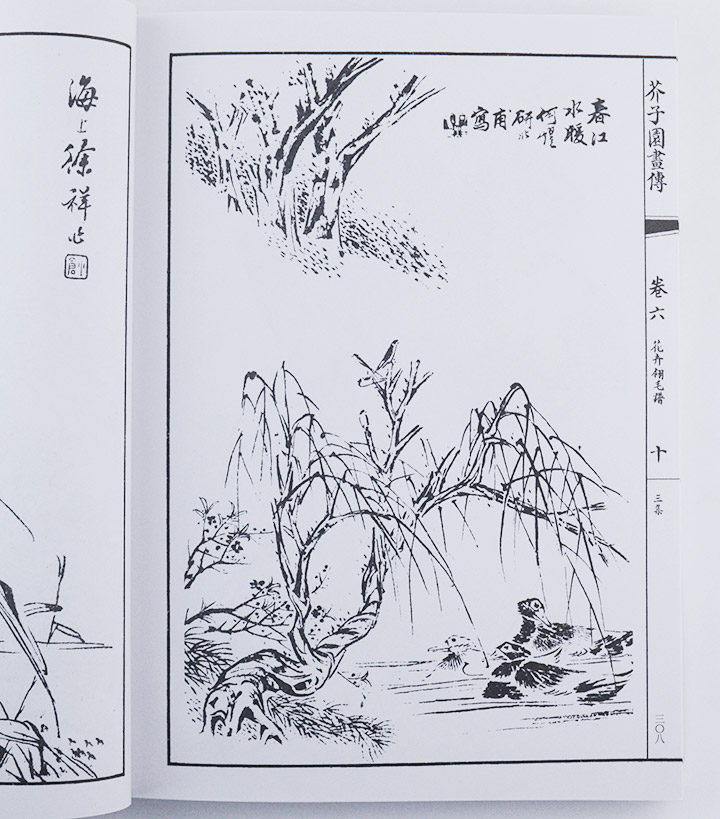 春江
水暖
何煜
研北
甫
寫
芥子園畫傳
卷六
花卉翎毛譜
十
三集
三〇八
海上徐祥